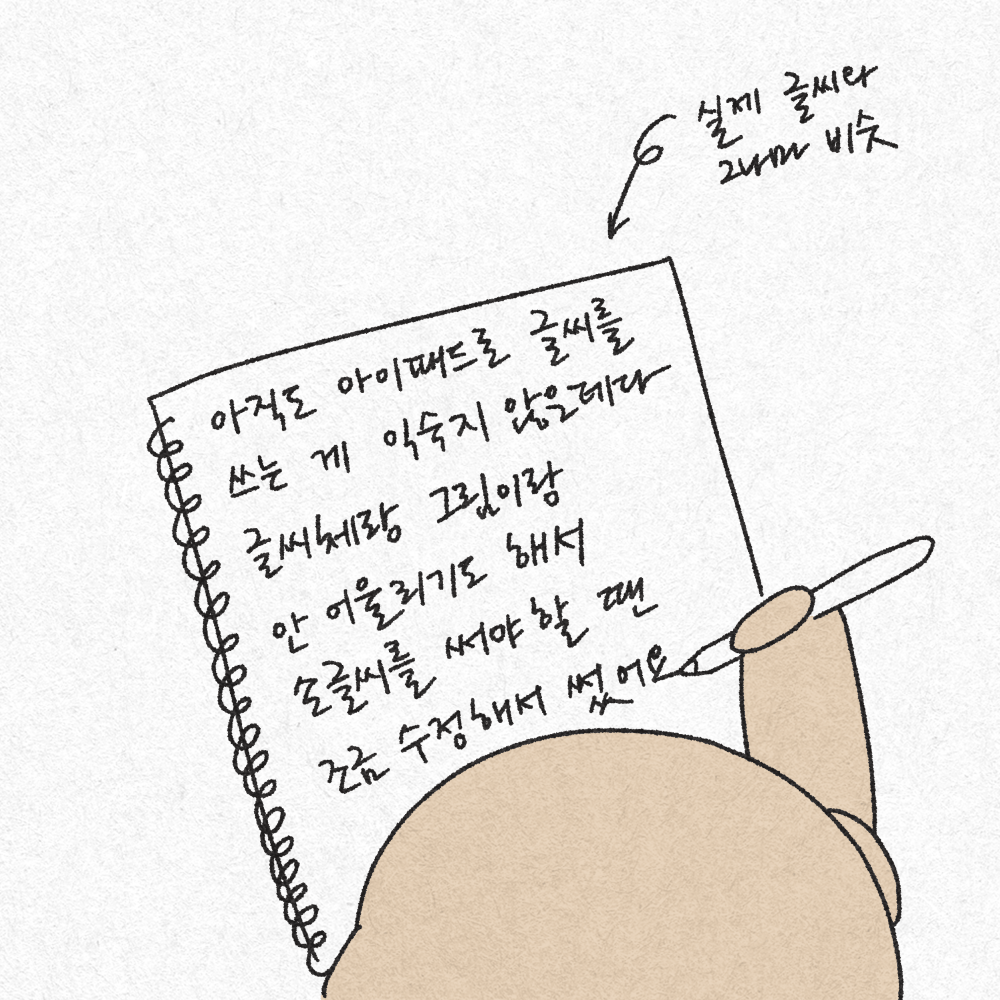 실제 글씨와
그나마 비슷
아직도 아이패드로 글씨를
쓰는 게 익숙지 않은데다
글씨체랑 그림이랑
안 어울리기도 해서
손글씨를 써야 할 땐
조금 수정해서 썼어요